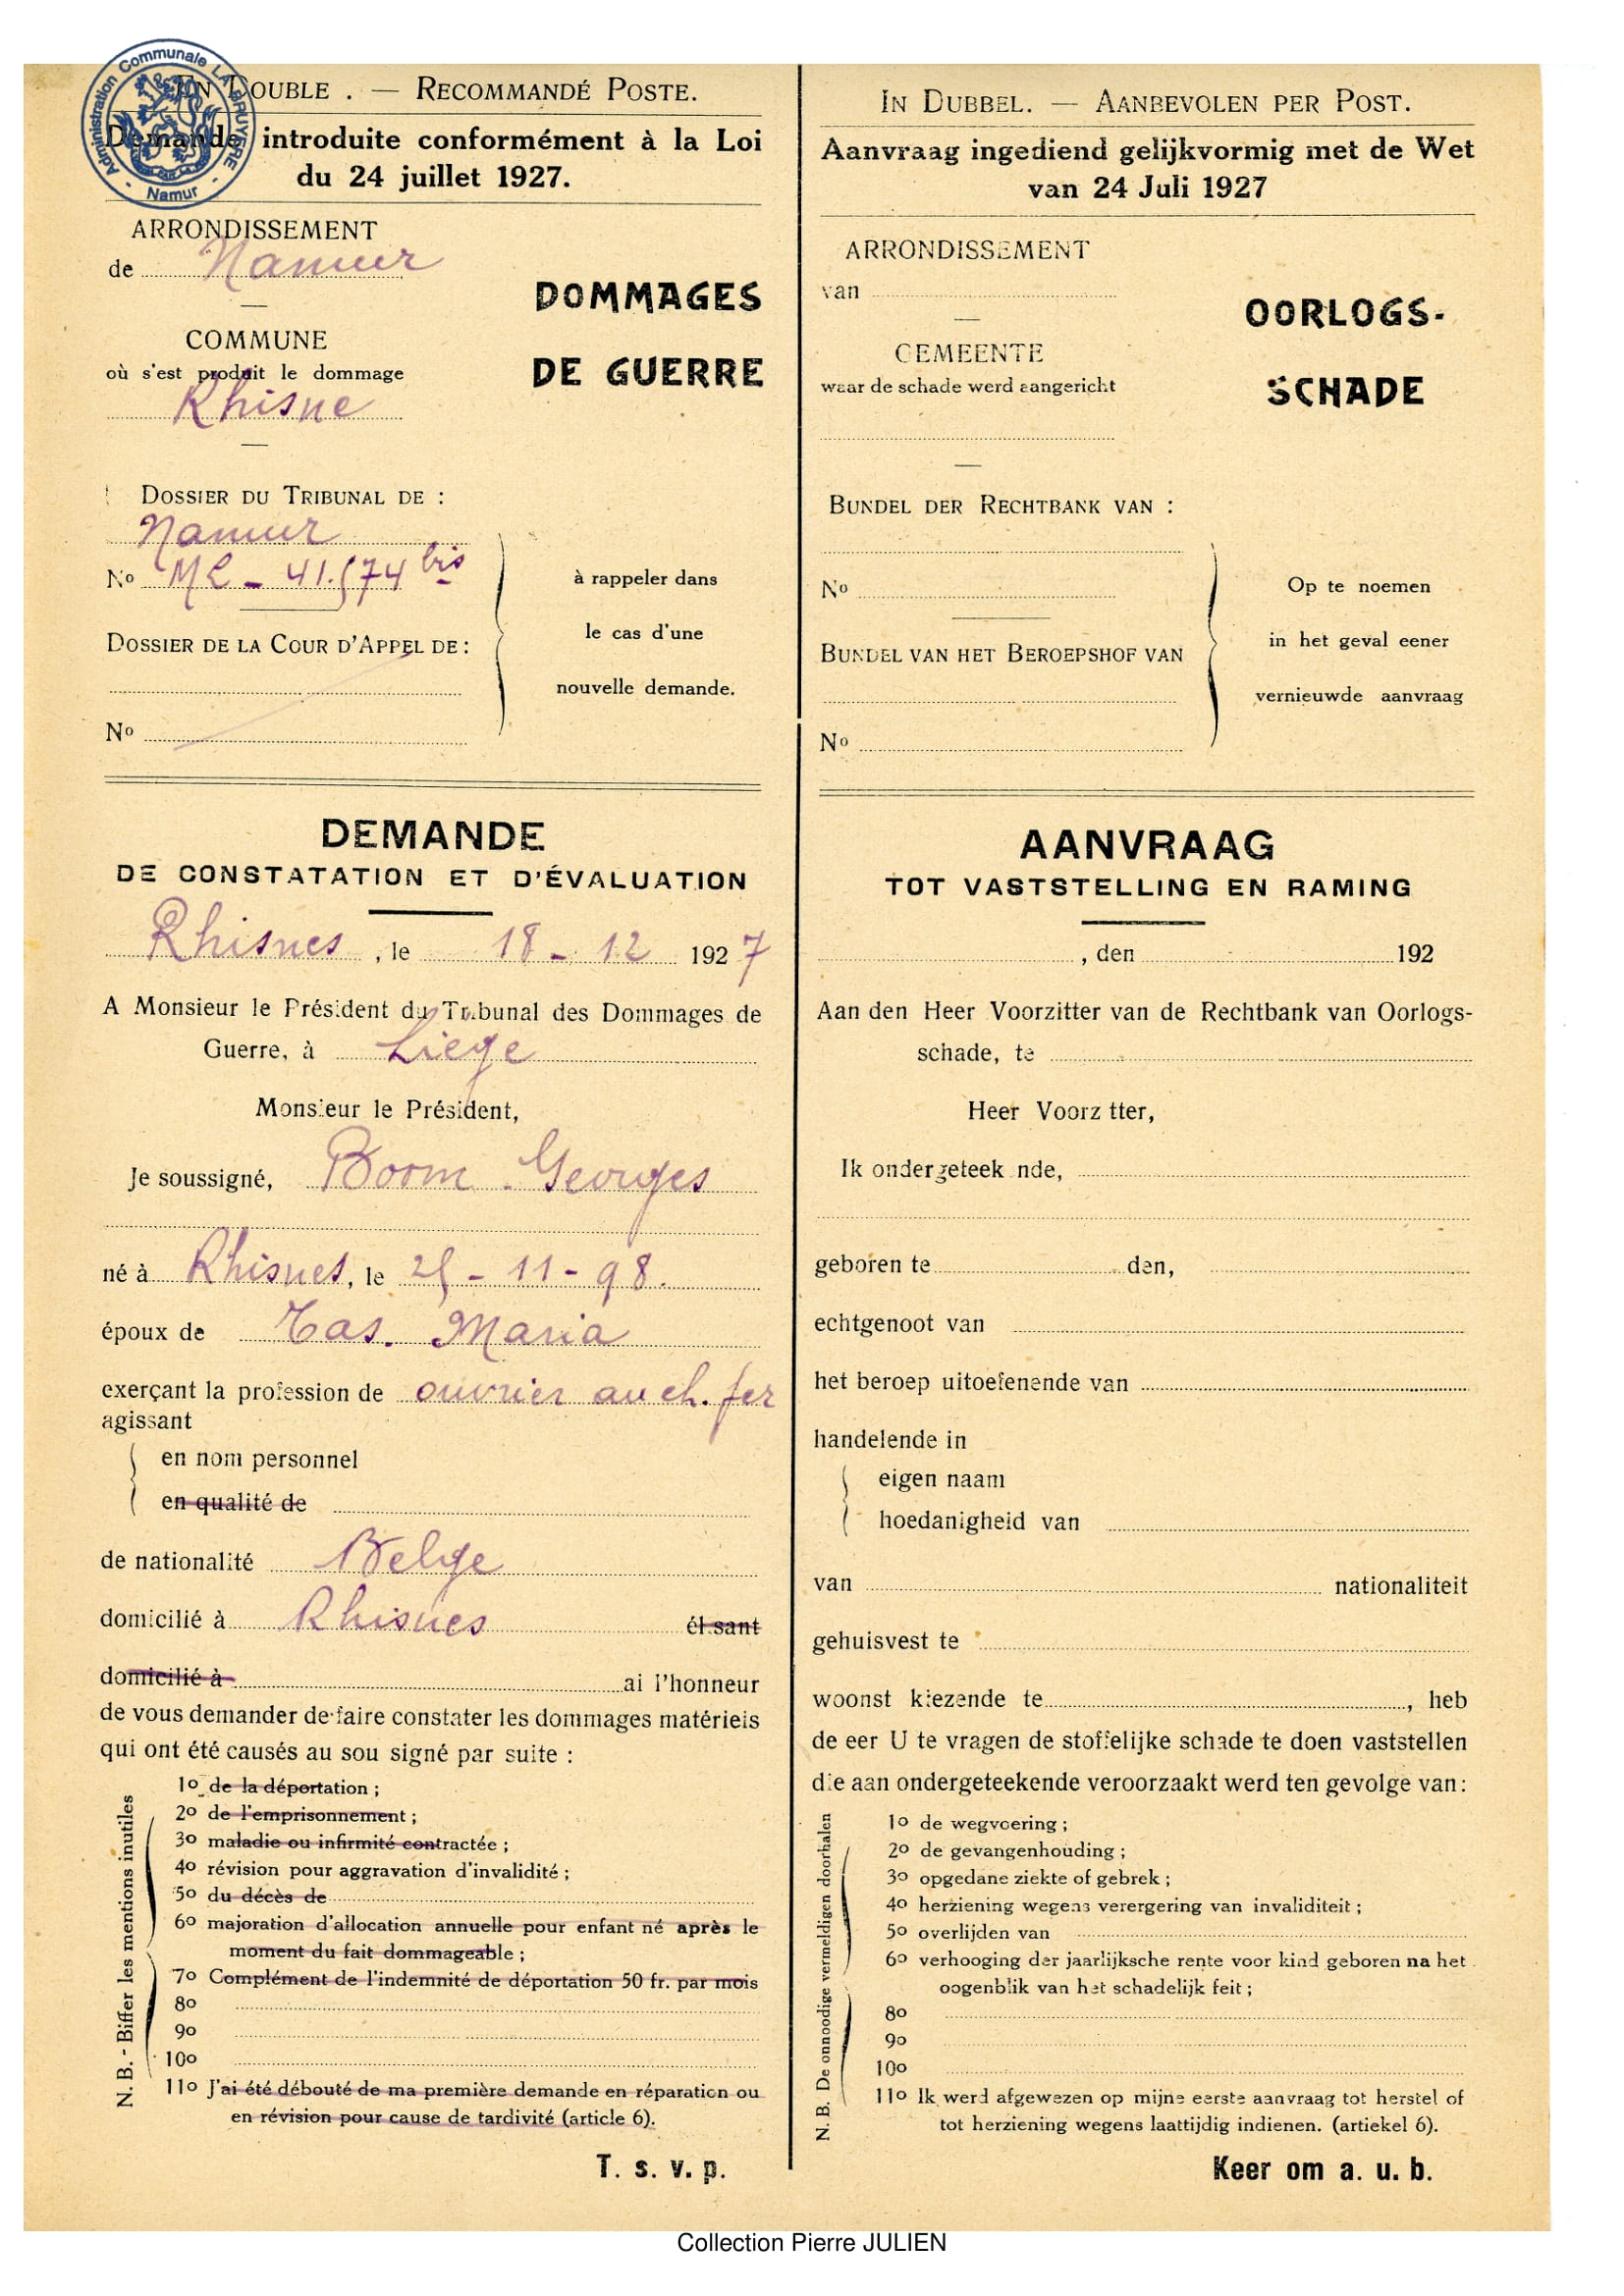 Administration Communale LA BRUYERE
- Namur -
EN DOUBLE . — RECOMMANDÉ POSTE.
Demande introduite conformément à la Loi
du 24 juillet 1927.
ARRONDISSEMENT
de Namur
COMMUNE
où s'est produit le dommage
Rhisne
DOMMAGES
DE GUERRE
DOSSIER DU TRIBUNAL DE :
Namur
No ML - 41.574 bis
DOSSIER DE LA COUR D'APPEL DE :
No
à rappeler dans
le cas d'une
nouvelle demande.
DEMANDE
DE CONSTATATION ET D'ÉVALUATION
Rhisnes, le 18 - 12 1927
A Monsieur le Président du Tribunal des Dommages de
Guerre, à Liege
Monsieur le Président,
Je soussigné, Boom Georges
né à Rhisnes, le 25 - 11 - 98.
époux de Tas. Maria
exerçant la profession de ouvrier au ch. fer
agissant
en nom personnel
en qualité de
de nationalité Belge
domicilié à Rhisnes él sant
domicilié à ai l'honneur
de vous demander de faire constater les dommages matériels
qui ont été causés au sou signé par suite :
N. B. - Biffer les mentions inutiles
1o de la déportation ;
2o de l'emprisonnement ;
3o maladie ou infirmité contractée ;
4o révision pour aggravation d'invalidité ;
5o du décès de
6o majoration d'allocation annuelle pour enfant né après le
moment du fait dommageable ;
7o Complément de l'indemnité de déportation 50 fr. par mois
8o
9o
10o
11o J'ai été débouté de ma première demande en réparation ou
en révision pour cause de tardivité (article 6).
T. s. v. p.
IN DUBBEL. — AANBEVOLEN PER POST.
Aanvraag ingediend gelijkvormig met de Wet
van 24 Juli 1927
ARRONDISSEMENT
van
GEMEENTE
waar de schade werd aangericht
OORLOGS-
SCHADE
BUNDEL DER RECHTBANK VAN :
No
BUNDEL VAN HET BEROEPSHOF VAN
No
Op te noemen
in het geval eener
vernieuwde aanvraag
AANVRAAG
TOT VASTSTELLING EN RAMING
, den 192
Aan den Heer Voorzitter van de Rechtbank van Oorlogs-
schade, te
Heer Voorz tter,
Ik ondergeteek nde,
geboren te den,
echtgenoot van
het beroep uitoefenende van
handelende in
eigen naam
hoedanigheid van
van nationaliteit
gehuisvest te
woonst kiezende te , heb
de eer U te vragen de stoffelijke schade te doen vaststellen
die aan ondergeteekende veroorzaakt werd ten gevolge van :
N. B. De onnoodige vermeldigen doorhalen
1o de wegvoering ;
2o de gevangenhouding ;
3o opgedane ziekte of gebrek ;
4o herziening wegens verergering van invaliditeit ;
5o overlijden van
6o verhooging der jaarlijksche rente voor kind geboren na het
oogenblik van het schadelijk feit ;
8o
9o
10o
11o Ik werd afgewezen op mijne eerste aanvraag tot herstel of
tot herziening wegens laattijdig indienen. (artiekel 6).
Keer om a. u. b.
Collection Pierre JULIEN